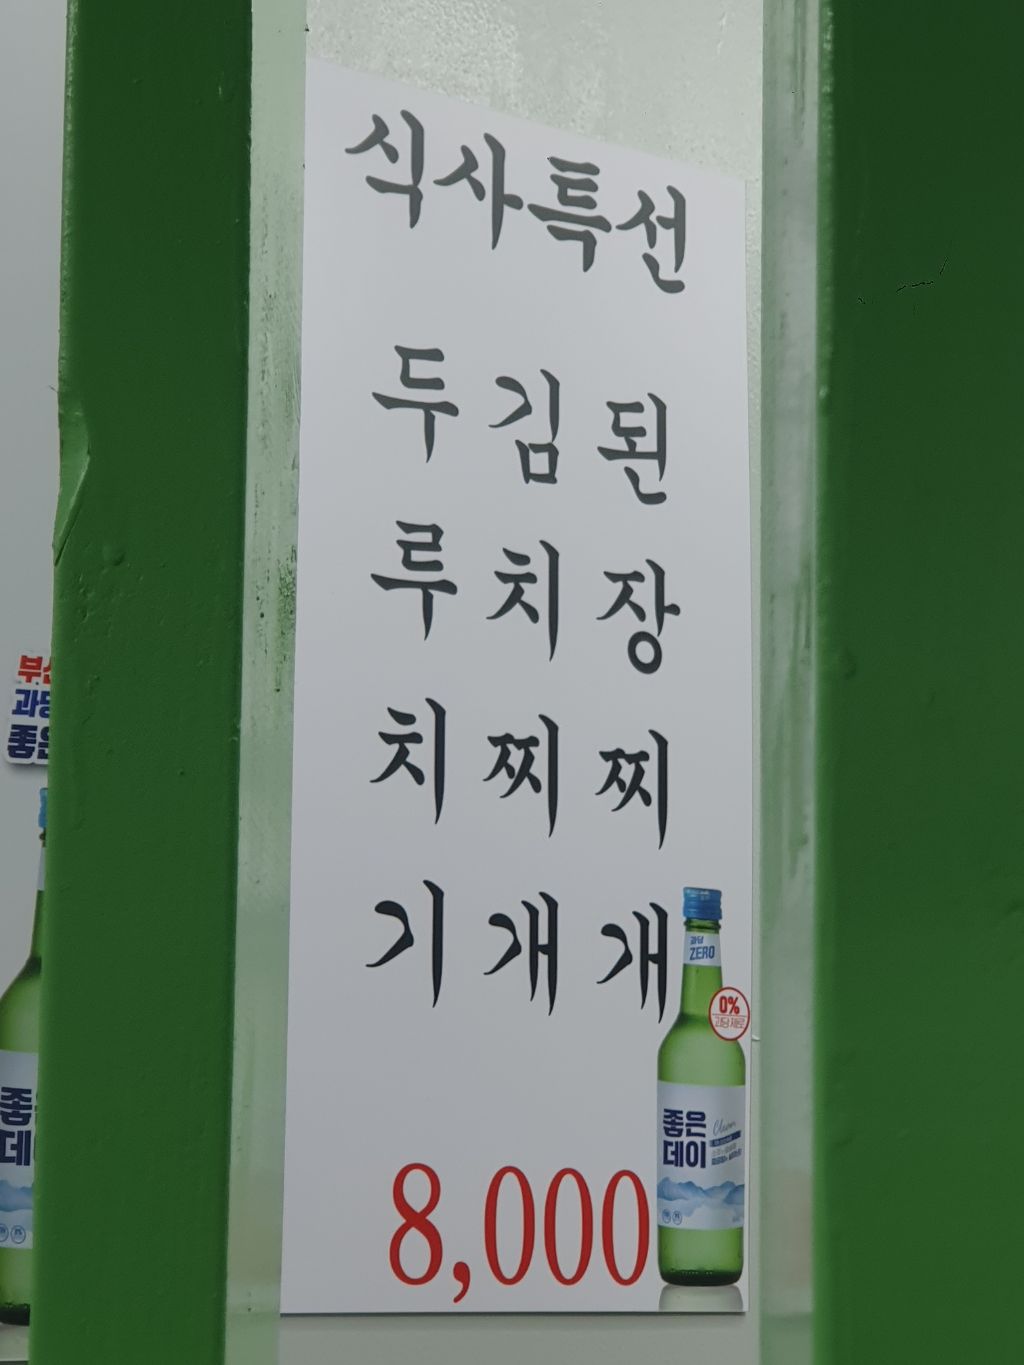 식사특선
두루치기
김치찌개
된장찌개
8,000
과당
ZERO
0%
과당제로
좋은
데이
Clean
부산
과당
좋은
좋은
데이